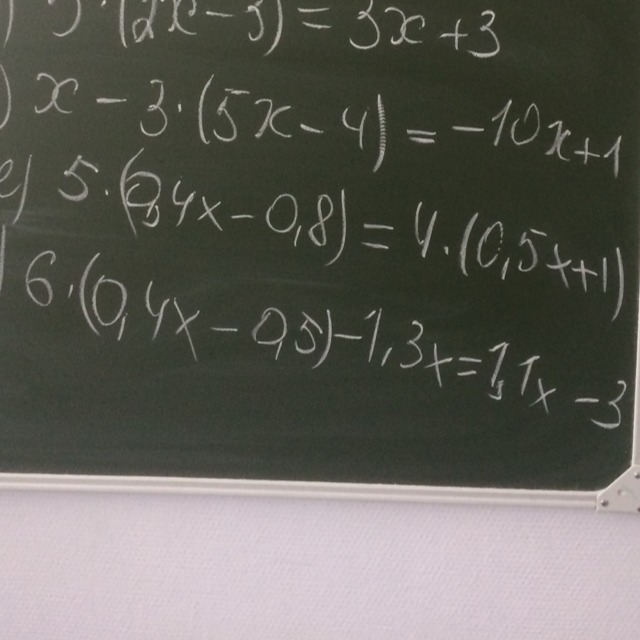 ) 5·(2x-3) = 3x+3
) x - 3·(5x-4) = -10x+1
e) 5·(0,4x-0,8) = 4·(0,5x+1)
) 6·(0,4x-0,5)-1,3x=1,1x-3